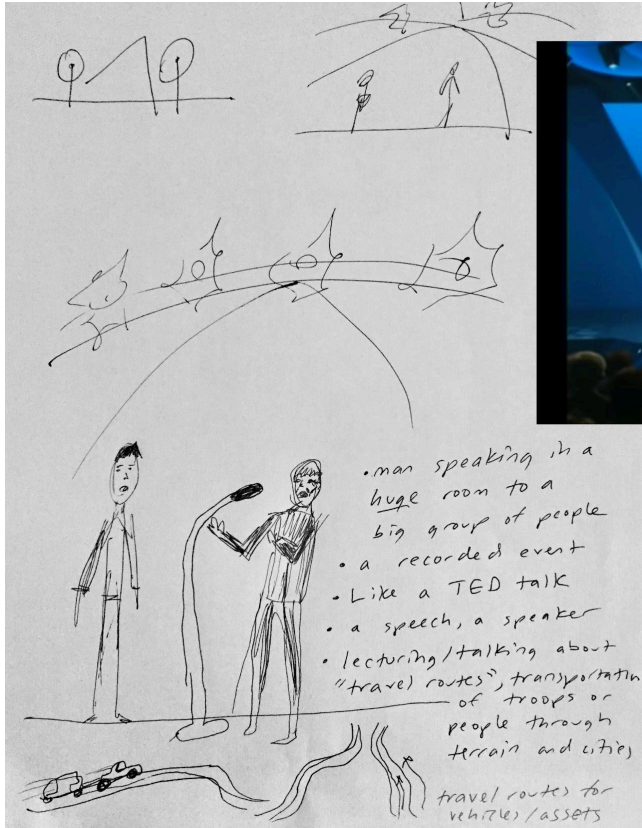 • man speaking in a
huge room to a
big group of people
• a recorded event
• Like a TED talk
• a speech, a speaker
• lecturing/talking about
"travel routes", transportatin
of troops or
people through
terrain and cities
travel routes for
vehicles/assets